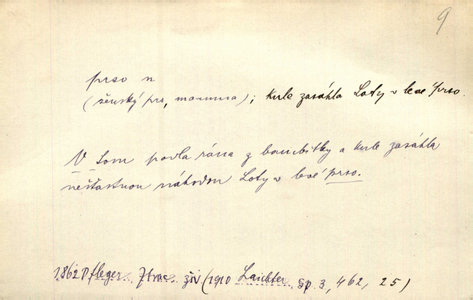 9
prso n
(ženský prs, mamma); kule zasáhla Loty v levé prso.
V tom padla rána z bambitky a kule zasáhla
nešťastnou náhodou Loty v levé prso.
1862 Pfleger Ztrac. živ (1910 Laichter, Sp. 3, 462, 25)